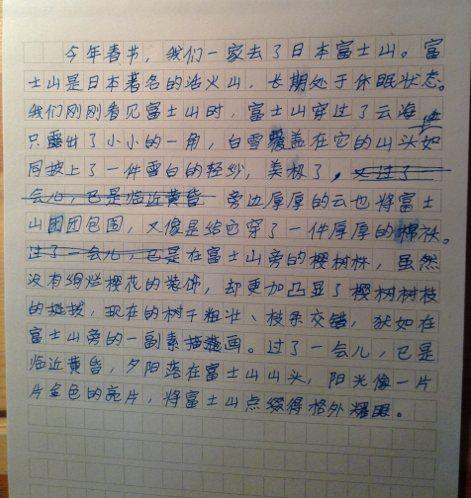 今年春节，我们一家去了日本富士山。富
士山是日本著名的活火山，长期处于休眠状态。
我们刚刚看见富士山时，富士山穿过了云海
只露出了小小的一角，白雪覆盖在它的山头如
同披上了一件雪白的轻纱，美极了，又过了
会儿，已是临近黄昏 旁边厚厚的云也将富士
山团团包围，又像是给它穿了一件厚厚的棉袄。
过了一会儿，已是在富士山旁的樱树林，虽然
没有绚烂樱花的装饰，却更加凸显了樱树树枝
的挺拔，现在的树干粗壮、枝条交错，犹如在
富士山旁的一副素描画。过了一会儿，已是
临近黄昏，夕阳落在富士山山头，阳光像一片
片金色的亮片，将富士山点缀得格外耀眼。